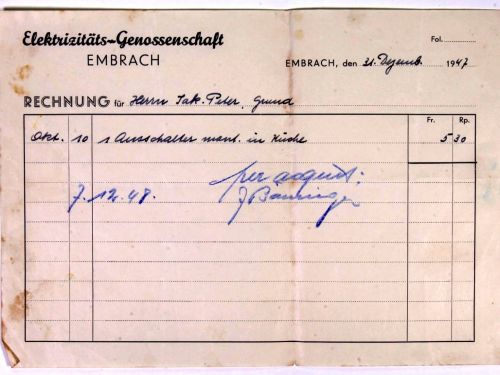 Elektrizitäts-Genossenschaft
EMBRACH
Fol.
EMBRACH, den 31. Dezemb. 1947
RECHNUNG für Herrn Jak. Peter, Grund
Fr. Rp.
Okt. 10 1 Ausschalter mont. in Küche 5 30
per acquit:
7. 12. 48. J Bänninger